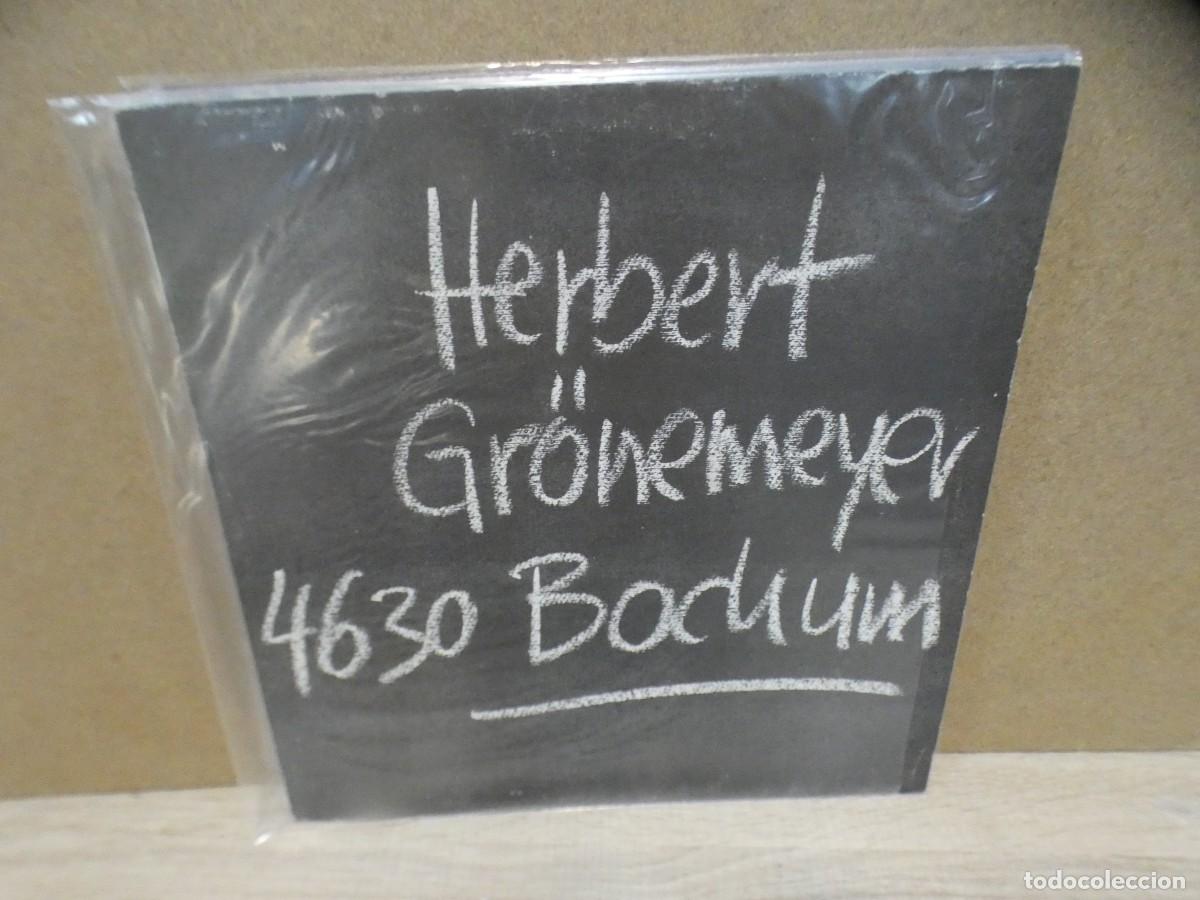 Herbert
Grönemeyer
4630 Bochum
todocoleccion